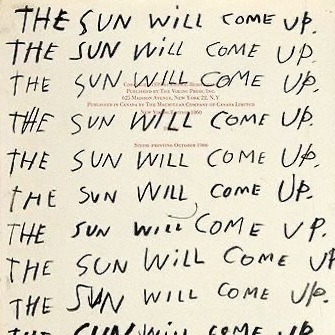 THE SUN WILL COME UP.
THE SUN WILL COME UP.
THE SUN WILL COME UP.
PUBLISHED BY THE VIKING PRESS, INC.
625 MADISON AVENUE, NEW YORK 22, N.Y.
PUBLISHED IN CANADA BY THE MACMILLAN COMPANY OF CANADA LIMITED
THE SUN WILL COME UP.
PRINTING OCTOBER 1966
THE SUN WILL COME UP.
THE SUN WILL COME UP.
THE SUN WILL COME UP.
THE SUN WILL COME UP
THE SUN WILL COME UP.
THE SUN WILL COME UP.